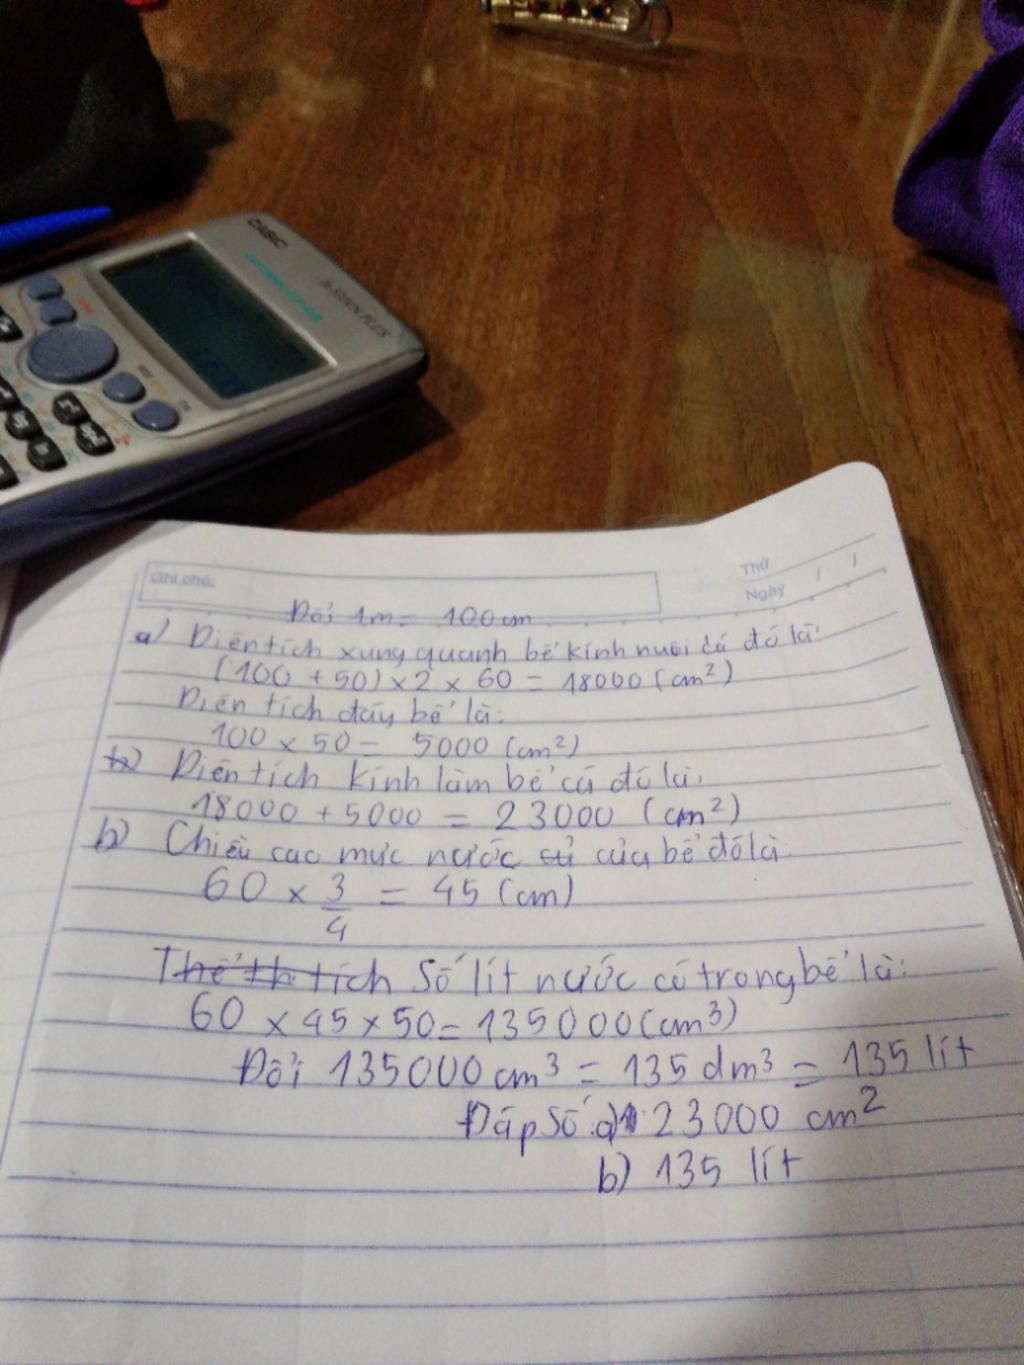 CASIO
fx-570VN PLUS
Ghi chú:
Thứ
Ngày / /
Đổi 1m = 100cm
a) Diện tích xung quanh bể kính nuôi cá đó là:
(100 + 50) x 2 x 60 = 18000 (cm²)
Diện tích đáy bể là:
100 x 50 = 5000 (cm²)
Diện tích kính làm bể cá đó là:
18000 + 5000 = 23000 (cm²)
b) Chiều cao mực nước của bể đó là
60 x 3/4 = 45 (cm)
Thể th tích Số lít nước có trong bể là:
60 x 45 x 50 = 135000 (cm³)
Đổi 135000 cm³ = 135 dm³ = 135 lít
Đáp Số: a) 23000 cm²
b) 135 lít